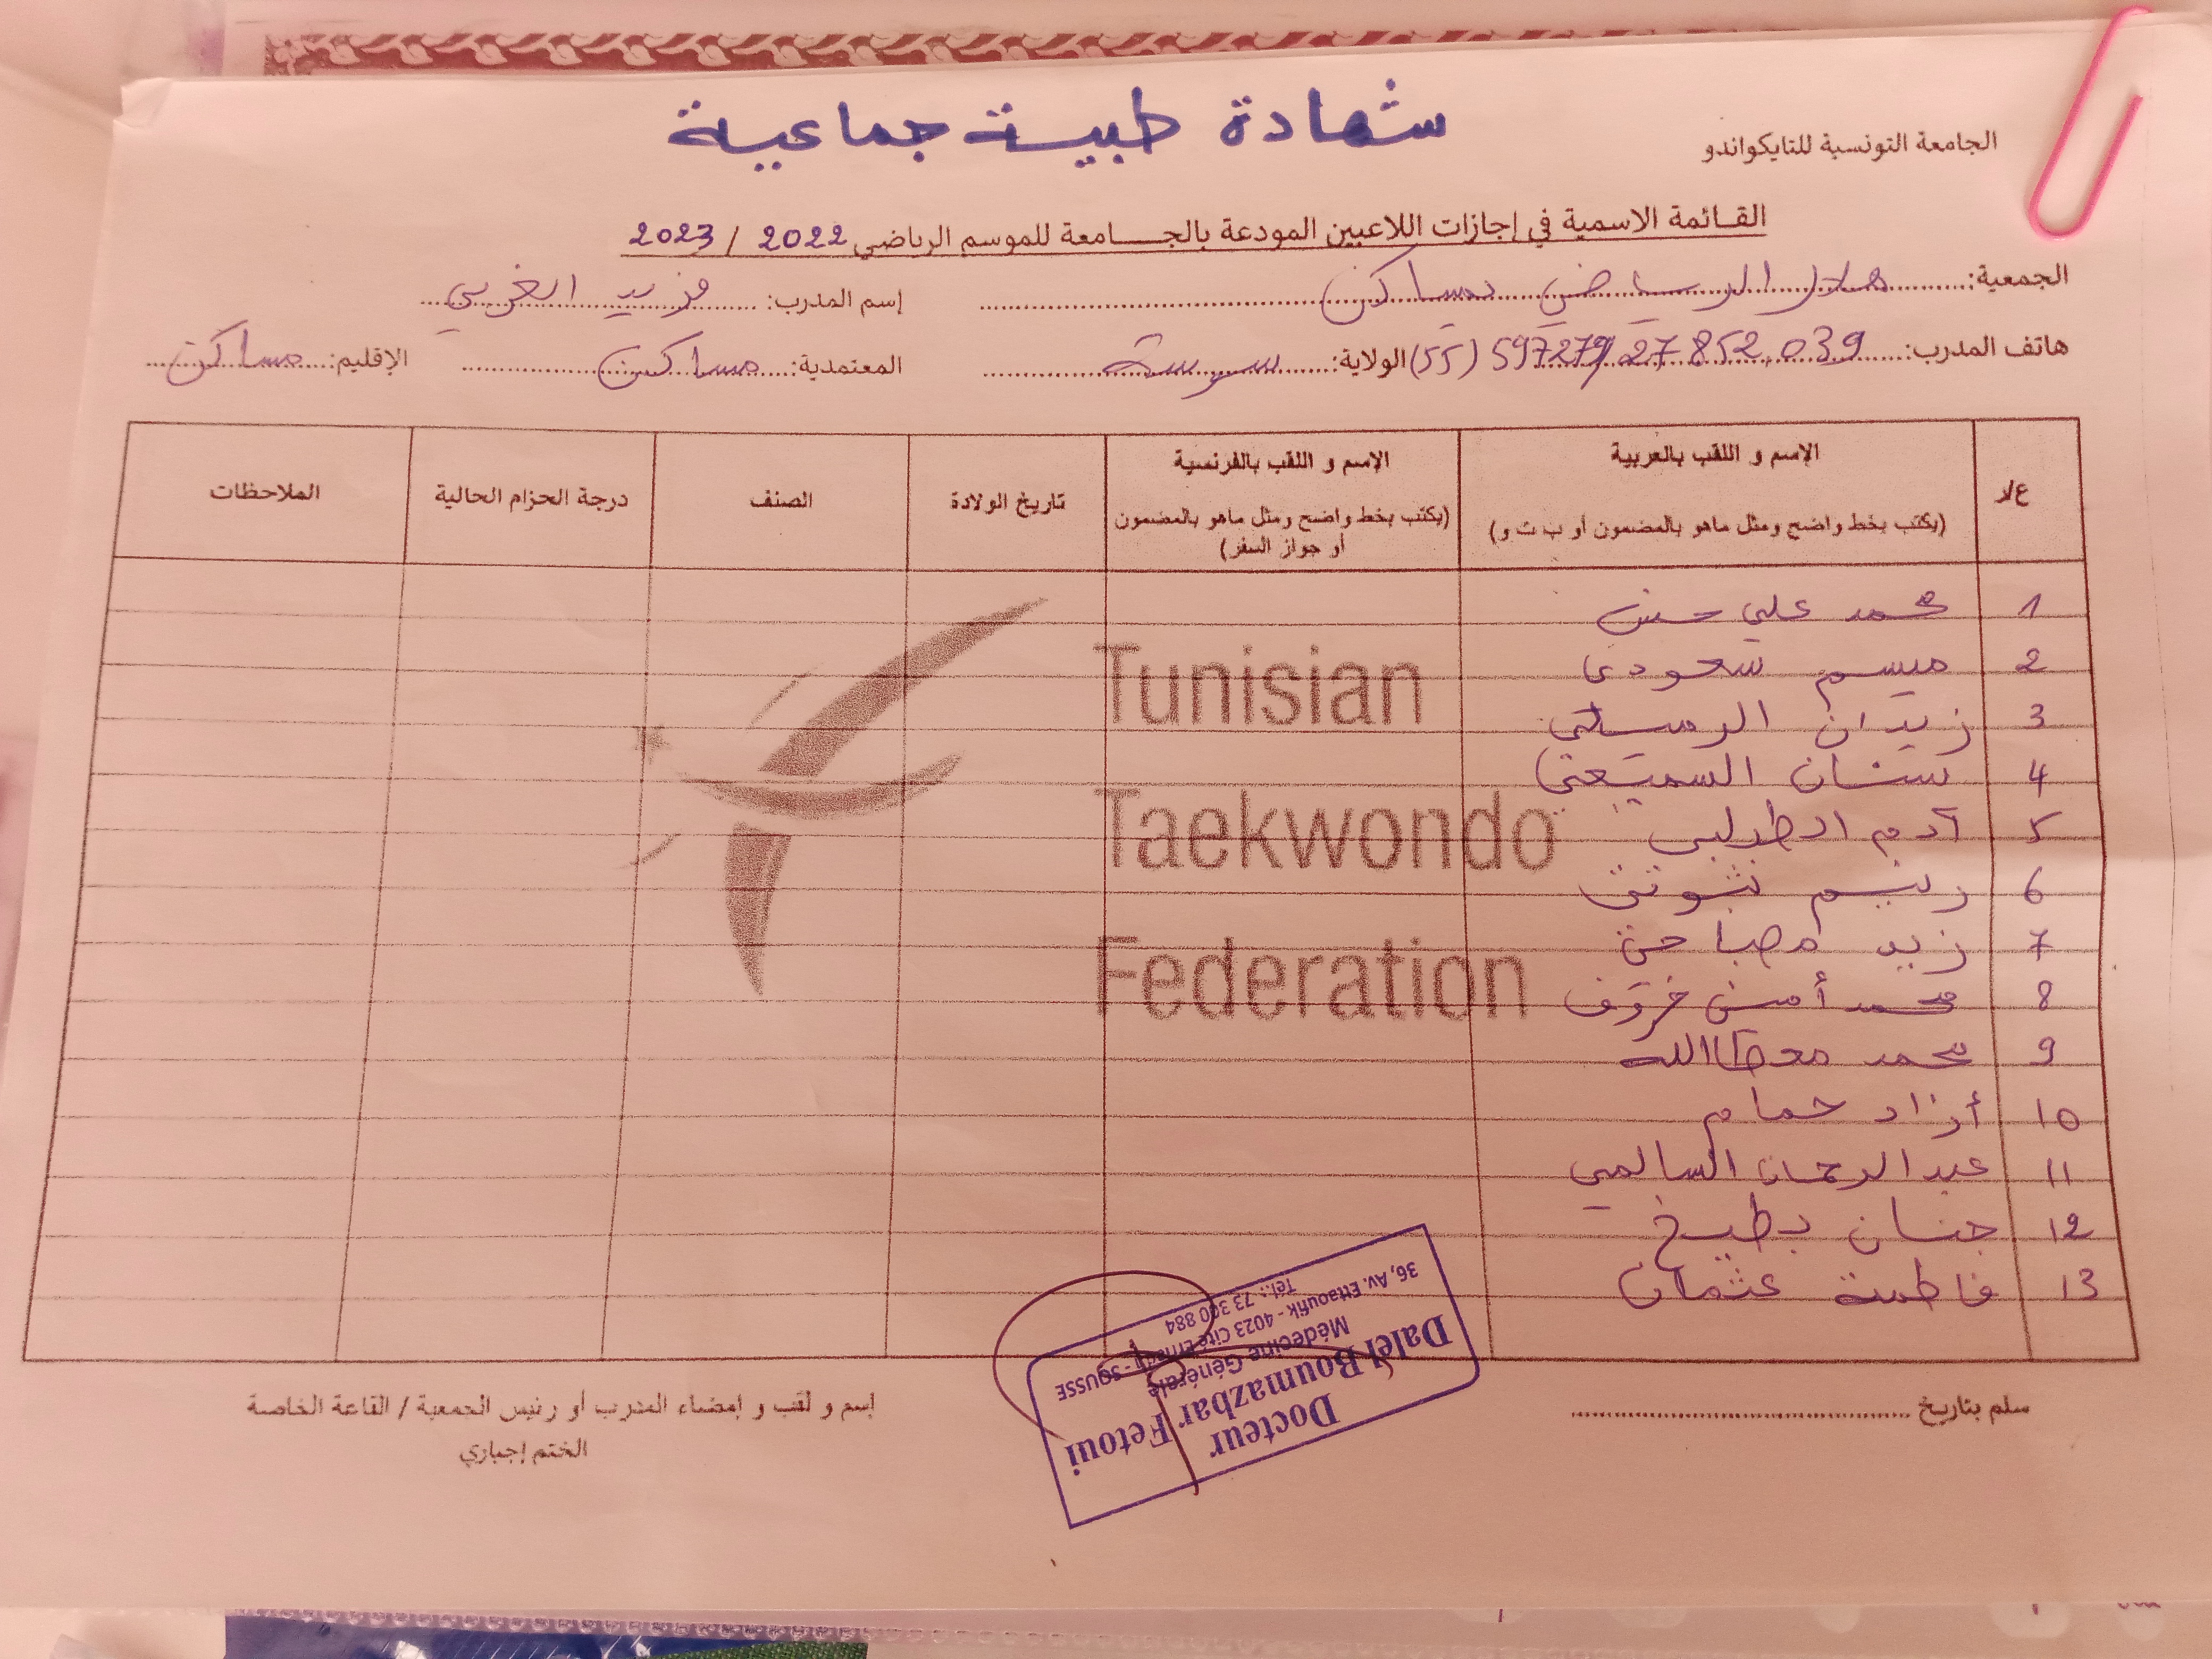 شهادة طبية جماعية
الجامعة التونسية للتايكواندو
القائمة الاسمية في إجازات اللاعبين المودعة بالجامعة للموسم الرياضي 2022 / 2023
الجمعية: هلال الرياضي بمساكن إسم المدرب: فريد الغربي
هاتف المدرب: 27 852 039 الولاية: سوسة المعتمدية: مساكن الإقليم: مساكن
ع/ر الإسم و اللقب بالعربية الإسم و اللقب بالفرنسية تاريخ الولادة الصنف درجة الحزام الحالية الملاحظات
(يكتب بخط واضح ومثل ماهو بالمضمون أو ب ت و) (يكتب بخط واضح ومثل ماهو بالمضمون أو جواز السفر)
1 محمد علي حسن
2 ميسم سعودي
3 زيدان
4 السميعي
5 آدم
6 رنيم
7 زيد مصباحي
8 محمد أمين
9 محمد
10 أزاد حمام
11 عبد الرحمان السالمي
12 جنان بطيخ
13 فاطمة عثمان
Tunisian
Taekwondo
Federation
سلم بتاريخ
إسم و لقب و إمضاء المدرب أو رئيس الجمعية / القاعة الخاصة
الختم إجباري
Docteur
Dalel Boumazbar Fetoui
Médecine Générale
36, Av. Ettaoufik - 4023 Cité Erriadh - SOUSSE
Tél.: 73 300 884